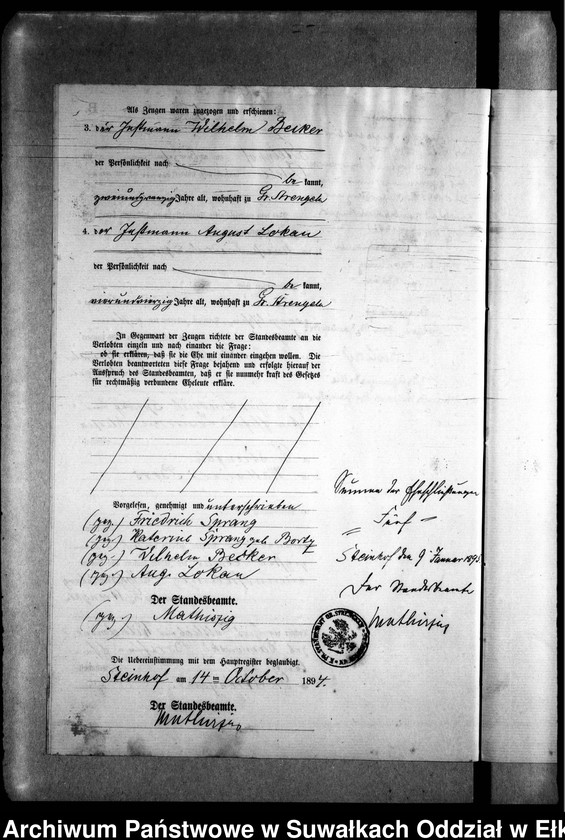 Als Zeugen waren zugezogen und erschienen:
3. der Instmann Wilhelm Becker
der Persönlichkeit nach
be kannt,
Jahre alt, wohnhaft zu Gr. Strengeln
4. der Instmann August Lokau
der Persönlichkeit nach
be kannt,
vierundvierzig Jahre alt, wohnhaft zu Gr. Strengeln
In Gegenwart der Zeugen richtete der Standesbeamte an die
Verlobten einzeln und nach einander die Frage:
ob sie erklären, daß sie die Ehe mit einander eingehen wollen. Die
Verlobten beantworteten diese Frage bejahend und erfolgte hierauf der
Ausspruch des Standesbeamten, daß er sie nunmehr kraft des Gesetzes
für rechtmäßig verbundene Eheleute erkläre.
Vorgelesen, genehmigt und unterschrieben
(gez.) Friedrich Sprang
(gez.) Katerine Sprang geb. Bortz
(gez.) Wilhelm Becker
(gez.) Aug. Lokau
Der Standesbeamte.
(gez.) Mathiszig
Die Uebereinstimmung mit dem Hauptregister beglaubigt.
Steinhof am 14 ten October 1894.
Der Standesbeamte.
Mathiszig
Summa der Eheschließungen
= Fünf =
Steinhof den 9 Januar 1895
Der Standesbeamte
Mathiszig
Archiwum Państwowe w Suwałkach Oddział w Ełk